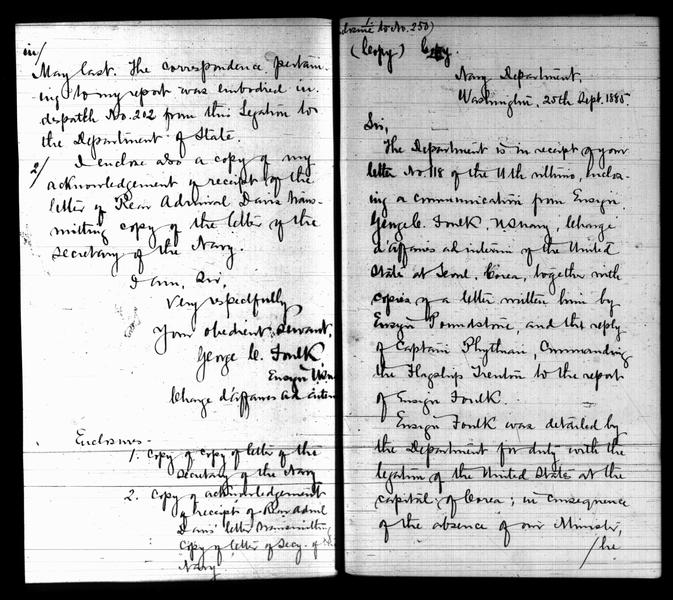 in/
May last. The correspondence pertain-
ing to my report was embodied in
dispatch No. 202 from this Legation to
the Department of State.
2/ I enclose also a copy of my
acknowledgement of receipt of the
letter of Rear Admiral Davis trans-
mitting copy of the letter of the
Secretary of the Navy.
I am, Sir,
Very respectfully
Your obedient servant,
George C. Foulk
Ensign U.S.N.
Charge d'affaires ad interim
Enclosures.
1. Copy of copy of letter of the
Secretary of the Navy
2. Copy of acknowledgement
of receipt of Rear Adml
Davis' letter transmitting
copy of letter of Secy. of
Navy
1.
to No. 250)
(Copy) Copy.
Navy Department,
Washington, 25th Sept. 1885.
Sir,
The Department is in receipt of your
letter No. 118 of the 11th ultimo, inclos-
ing a communication from Ensign
George C. Foulk, U.S. Navy, Charge
d'affaires ad interim of the United
States at Seoul, Corea, together with
copies of a letter written him by
Ensign Poundstone, and the reply
of Captain Phythian, Commanding
the Flagship Trenton to the report
of Ensign Foulk.
Ensign Foulk was detailed by
the Department for duty with the
legation of the United States at the
capital of Corea; in consequence
of the absence of our Minister,
/he